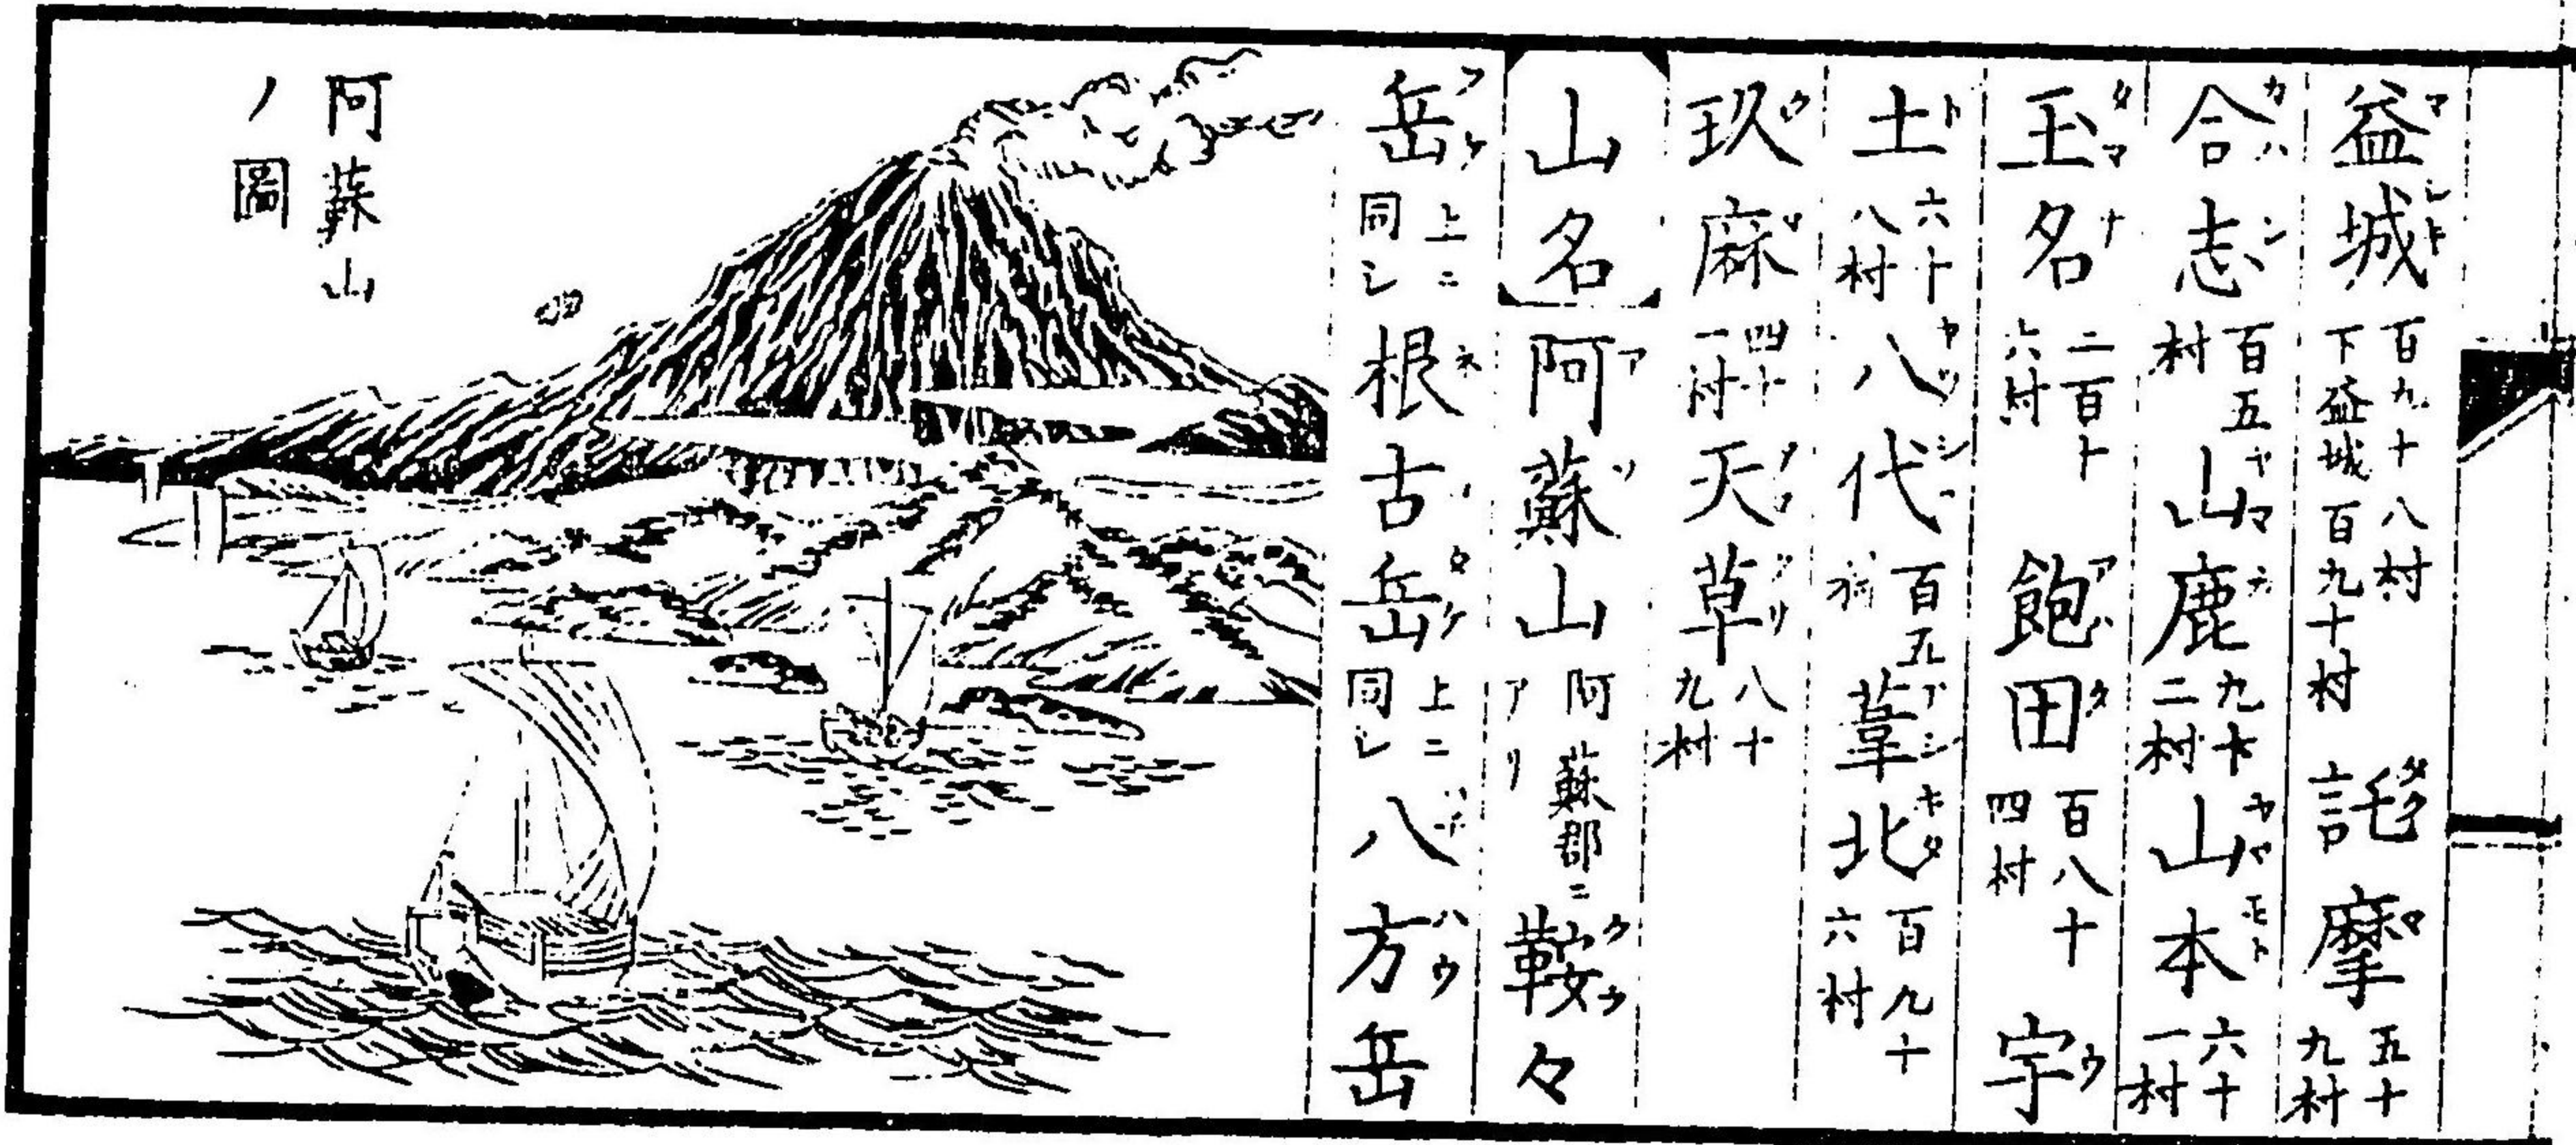 益城 百九十八村 下益城百九十村 詫摩 五十九村
合志 百五村 山鹿 九十二村 山本 六十一村
玉名 二百十六村 飽田 百八十四村 宇
土 六十八村 八代 百五 葦北 百九十六村
玖麻 四十一村 天草 八十九村
山名 阿蘇山 阿蘇郡ニアリ 鞍々
岳 上ニ同シ 根古岳 上ニ同シ 八方岳
阿蘇山
ノ圖